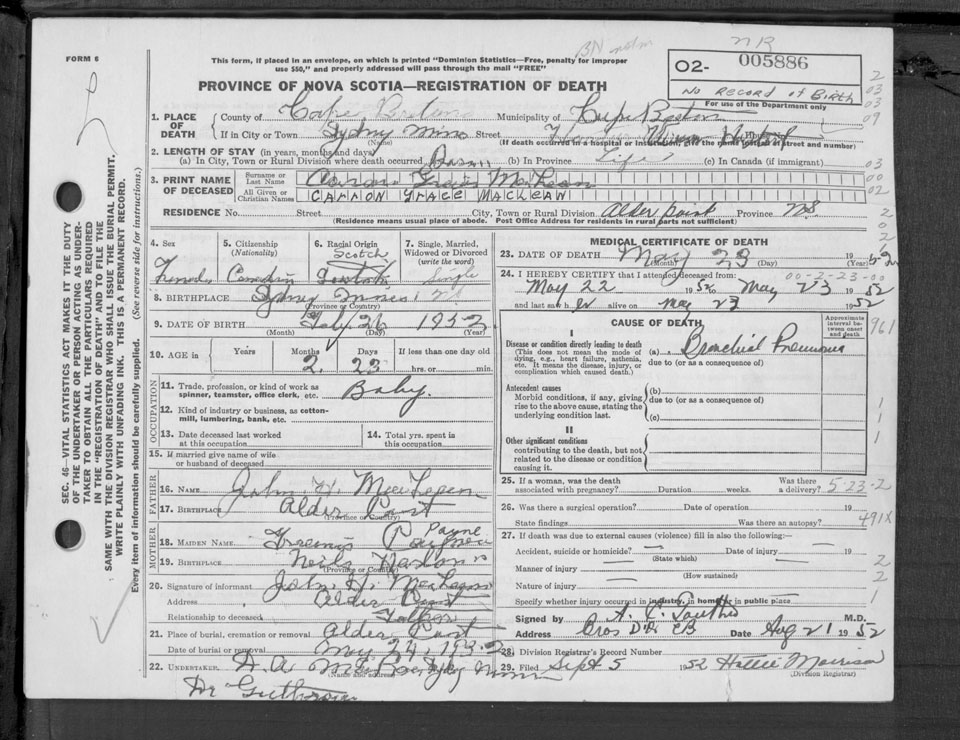 FORM 6
This form, if placed in an envelope, on which is printed "Dominion Statistics—Free, penalty for improper
use $50," and properly addressed will pass through the mail "FREE"
NR
O2- 005886
NO RECORD of BIRTH
For use of the Department only
PROVINCE OF NOVA SCOTIA—REGISTRATION OF DEATH
1. PLACE OF DEATH County of Cape Breton Municipality of Cape Breton
If in City or Town Sydney Mines Street
(Name) (If death occurred in a hospital or institution, give the name instead of street and number)
2. LENGTH OF STAY (in years, months and days)
(a) In City, Town or Rural Division where death occurred (b) In Province Life (c) In Canada (if immigrant)
3. PRINT NAME OF DECEASED
Surname or Last Name Grace MacLean
All Given or Christian Names GRACE MACLEAN
RESIDENCE No. Street City, Town or Rural Division Alder Point Province NS
(Residence means usual place of abode. Post Office Address for residents in rural parts not sufficient)
4. Sex 5. Citizenship (Nationality) 6. Racial Origin 7. Single, Married, Widowed or Divorced (write the word)
Female Canadian Scotch Single
8. BIRTHPLACE Sydney Mines
(Province or Country)
9. DATE OF BIRTH Feb 26 1952
(Month) (Day) (Year)
10. AGE in Years Months Days If less than one day old
2 23 hrs. or min.
OCCUPATION
11. Trade, profession, or kind of work as spinner, teamster, office clerk, etc. Baby
12. Kind of industry or business, as cotton-mill, lumbering, bank, etc.
13. Date deceased last worked at this occupation
14. Total yrs. spent in this occupation
15. If married give name of wife or husband of deceased
FATHER
16. Name John H. MacLean
17. Birthplace Alder Point
(Province or Country)
MOTHER
18. Maiden Name Payne
19. Birthplace
(Province or Country)
20. Signature of informant John H. MacLean
Address Alder Point
Relationship to deceased Father
21. Place of burial, cremation or removal Alder Point
Date of burial or removal May 24, 1952
22. Undertaker
(Name and address)
MEDICAL CERTIFICATE OF DEATH
23. DATE OF DEATH May 23 1952
(Month) (Day) (Year)
24. I HEREBY CERTIFY that I attended deceased from: 00-2-23-00
May 22 1952 to May 23 1952
and last saw her alive on May 23 1952
CAUSE OF DEATH
Approximate interval between onset and death
I
Disease or condition directly leading to death (a) Bronchial Pneumonia
(This does not mean the mode of dying, e.g., heart failure, asthenia, etc. It means the disease, injury, or complication which caused death.)
due to (or as a consequence of)
Antecedent causes
Morbid conditions, if any, giving rise to the above cause, stating the underlying condition last.
(b)
due to (or as a consequence of)
(c)
II
Other significant conditions
contributing to the death, but not related to the disease or condition causing it.
25. If a woman, was the death associated with pregnancy? Duration weeks. Was there a delivery? 5-23-2
26. Was there a surgical operation? Date of operation 19
State findings Was there an autopsy? 491X
27. If death was due to external causes (violence) fill in also the following:
Accident, suicide or homicide? Date of injury 19
(State which)
Manner of injury
(How sustained)
Nature of injury
Specify whether injury occurred in industry, in home, or in public place
Signed by M.D.
Address Date Aug 21 1952
28. Division Registrar's Record Number
29. Filed Sept 5 1952 Hattie Morrison
(Division Registrar)
SEC. 46—VITAL STATISTICS ACT MAKES IT THE DUTY
OF THE UNDERTAKER OR PERSON ACTING AS UNDER-
TAKER TO OBTAIN ALL THE PARTICULARS REQUIRED
IN THE "REGISTRATION OF DEATH" AND TO FILE THE
SAME WITH THE DIVISION REGISTRAR WHO SHALL ISSUE THE BURIAL PERMIT.
WRITE PLAINLY WITH UNFADING INK. THIS IS A PERMANENT RECORD.
Every item of information should be carefully supplied. (See reverse side for instructions.)